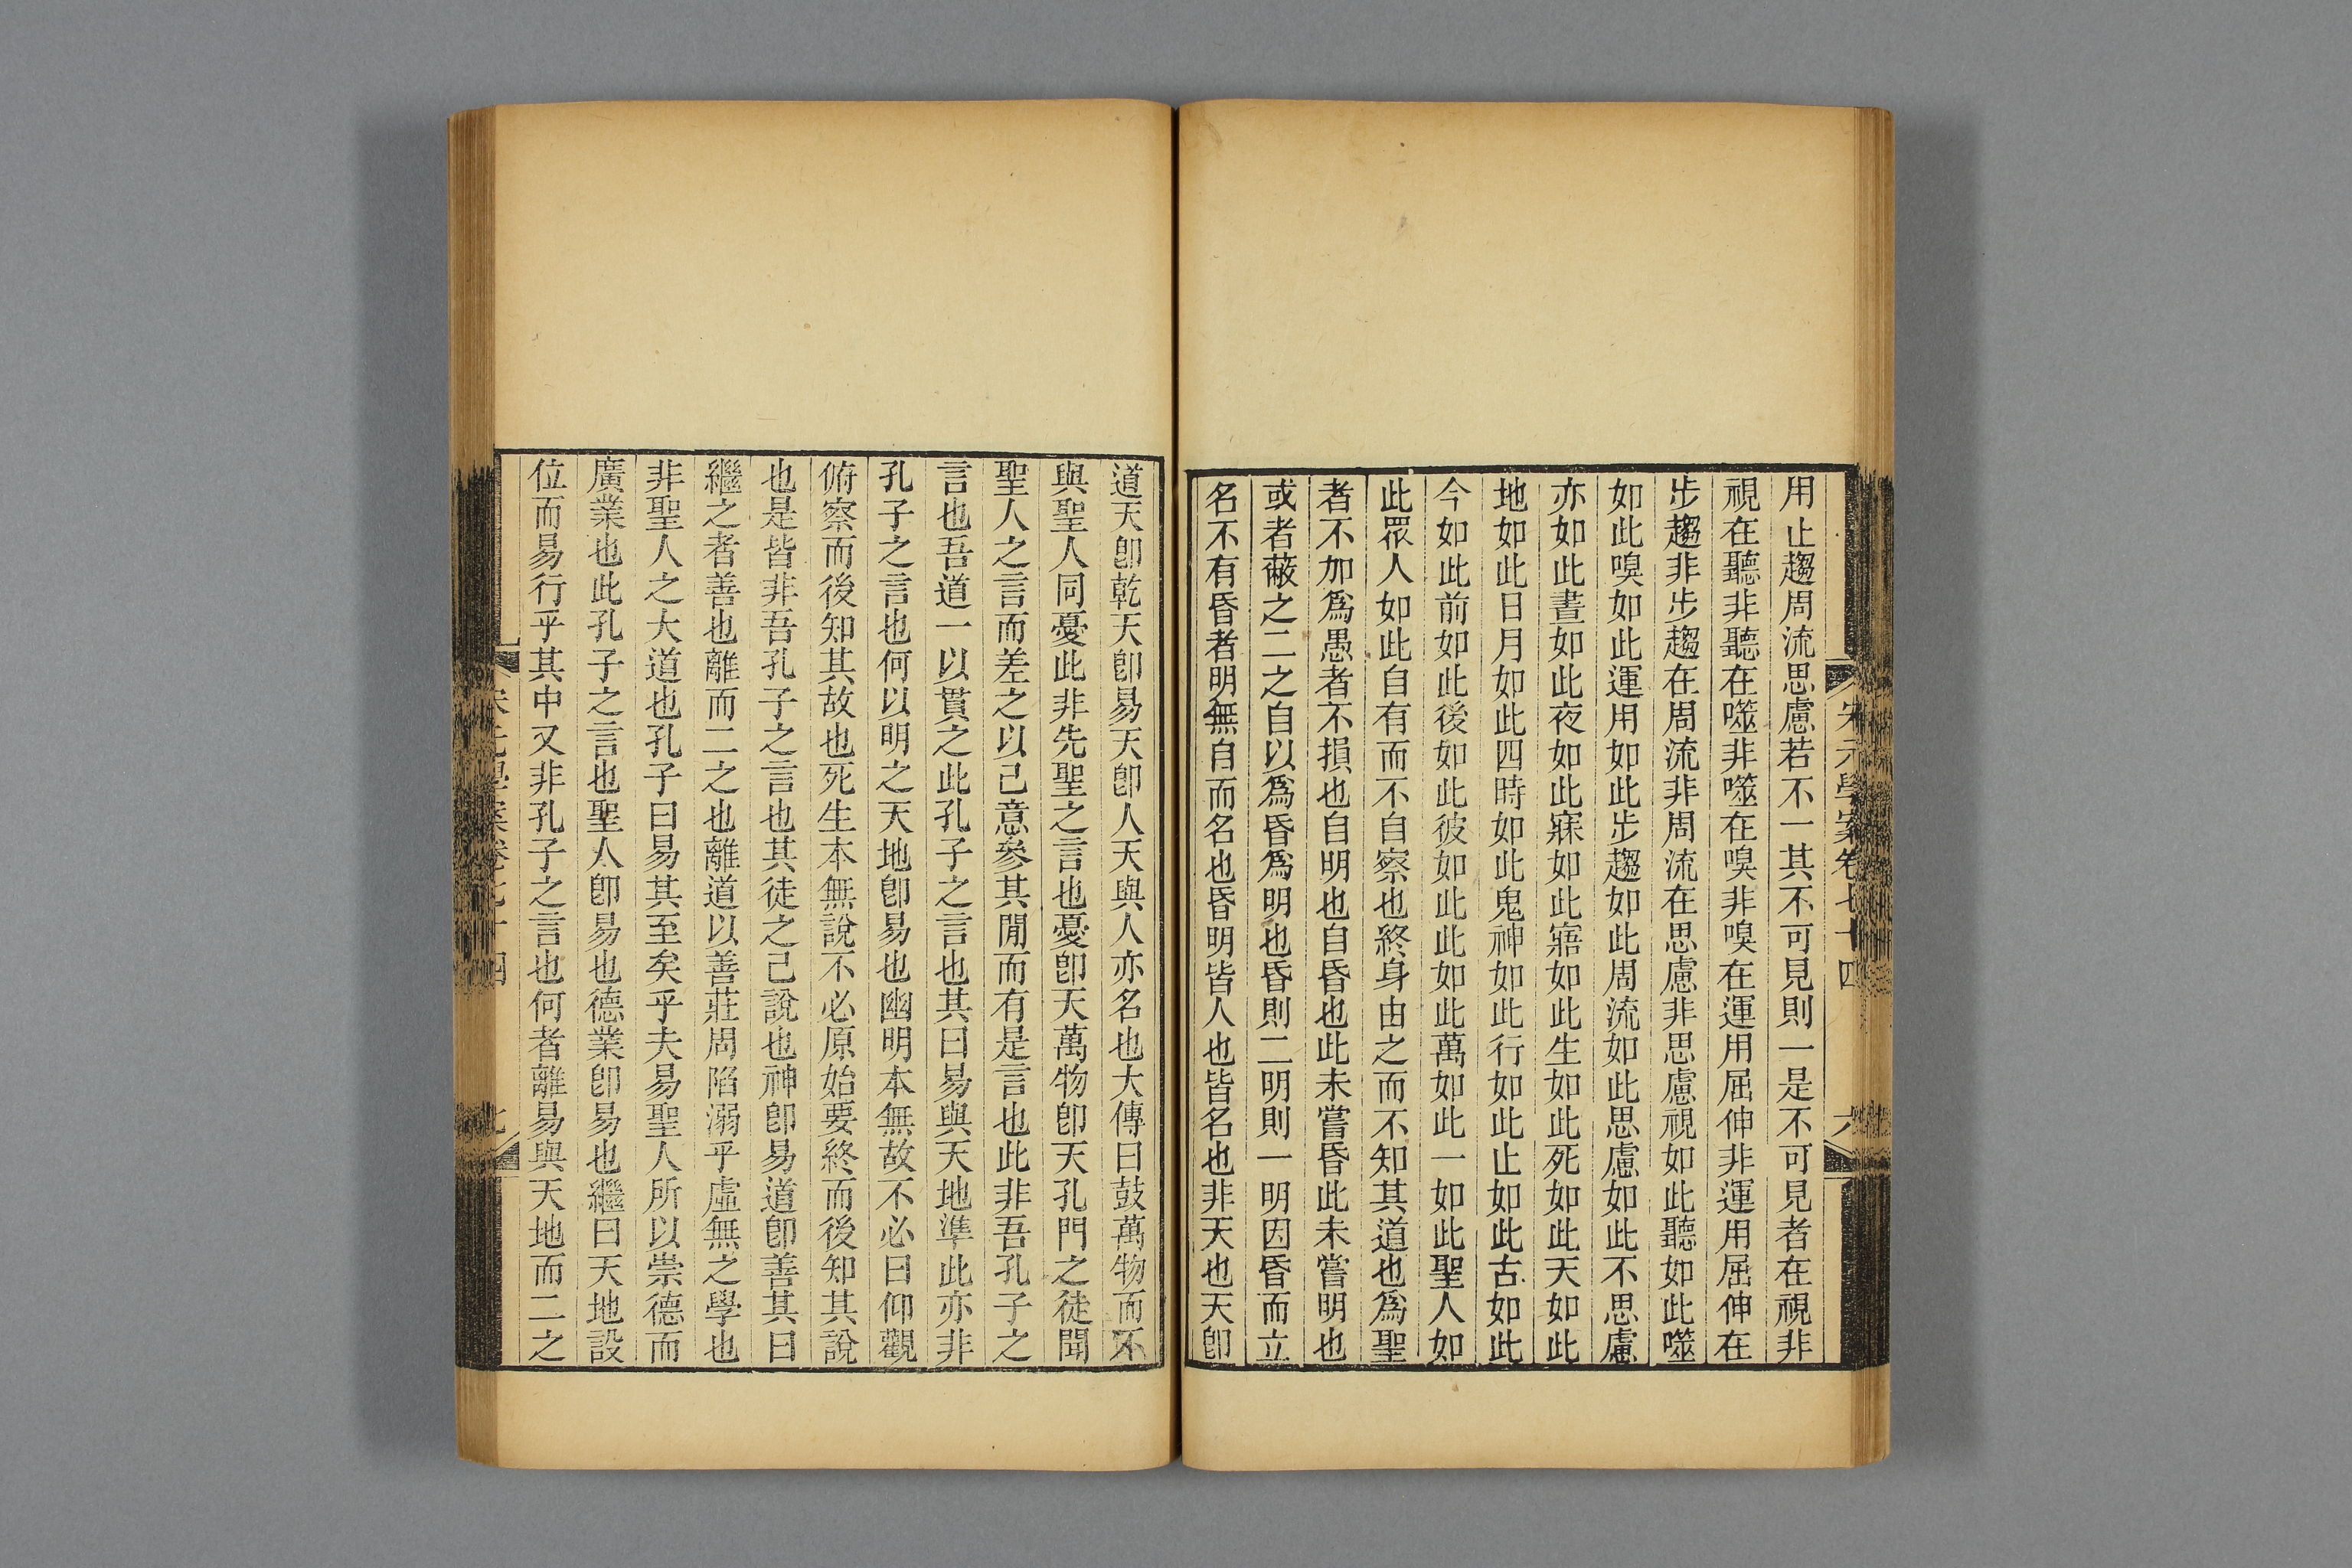 宋元學案卷七十四 六
用止趨周流思慮若不一其不可見則一是不可見者在視非
視在聽非聽在噬非噬在嗅非嗅在運用屈伸非運用屈伸在
步趨非步趨在周流非周流在思慮非思慮視如此聽如此噬
如此嗅如此運用如此步趨如此周流如此思慮如此不思慮
亦如此晝如此夜如此寐如此寤如此生如此死如此天如此
地如此日月如此四時如此鬼神如此行如此止如此古如此
今如此前如此後如此彼如此此如此萬如此一如此聖人如
此眾人如此自有而不自察也終身由之而不知其道也爲聖
者不加爲愚者不損也自明也自昏也此未嘗昏此未嘗明也
或者蔽之二之自以爲昏爲明也昏則二明則一明因昏而立
名不有昏者明無自而名也昏明皆人也皆名也非天也天卽
道天卽乾天卽易天卽人天與人亦名也大傳曰鼓萬物而不
與聖人同憂此非先聖之言也憂卽天萬物卽天孔門之徒聞
聖人之言而差之以己意參其閒而有是言也此非吾孔子之
言也吾道一以貫之此孔子之言也其曰易與天地準此亦非
孔子之言也何以明之天地卽易也幽明本無故不必曰仰觀
俯察而後知其故也死生本無說不必原始要終而後知其說
也是皆非吾孔子之言也其徒之己說也神卽易道卽善其曰
繼之者善也離而二之也離道以善莊周陷溺乎虛無之學也
非聖人之大道也孔子曰易其至矣乎夫易聖人所以崇德而
廣業也此孔子之言也聖人卽易也德業卽易也繼曰天地設
位而易行乎其中又非孔子之言也何者離易與天地而二之
宋元學案卷七十四 七